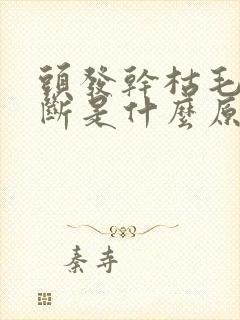 頭發幹枯毛
斷是什麼原
秦寺